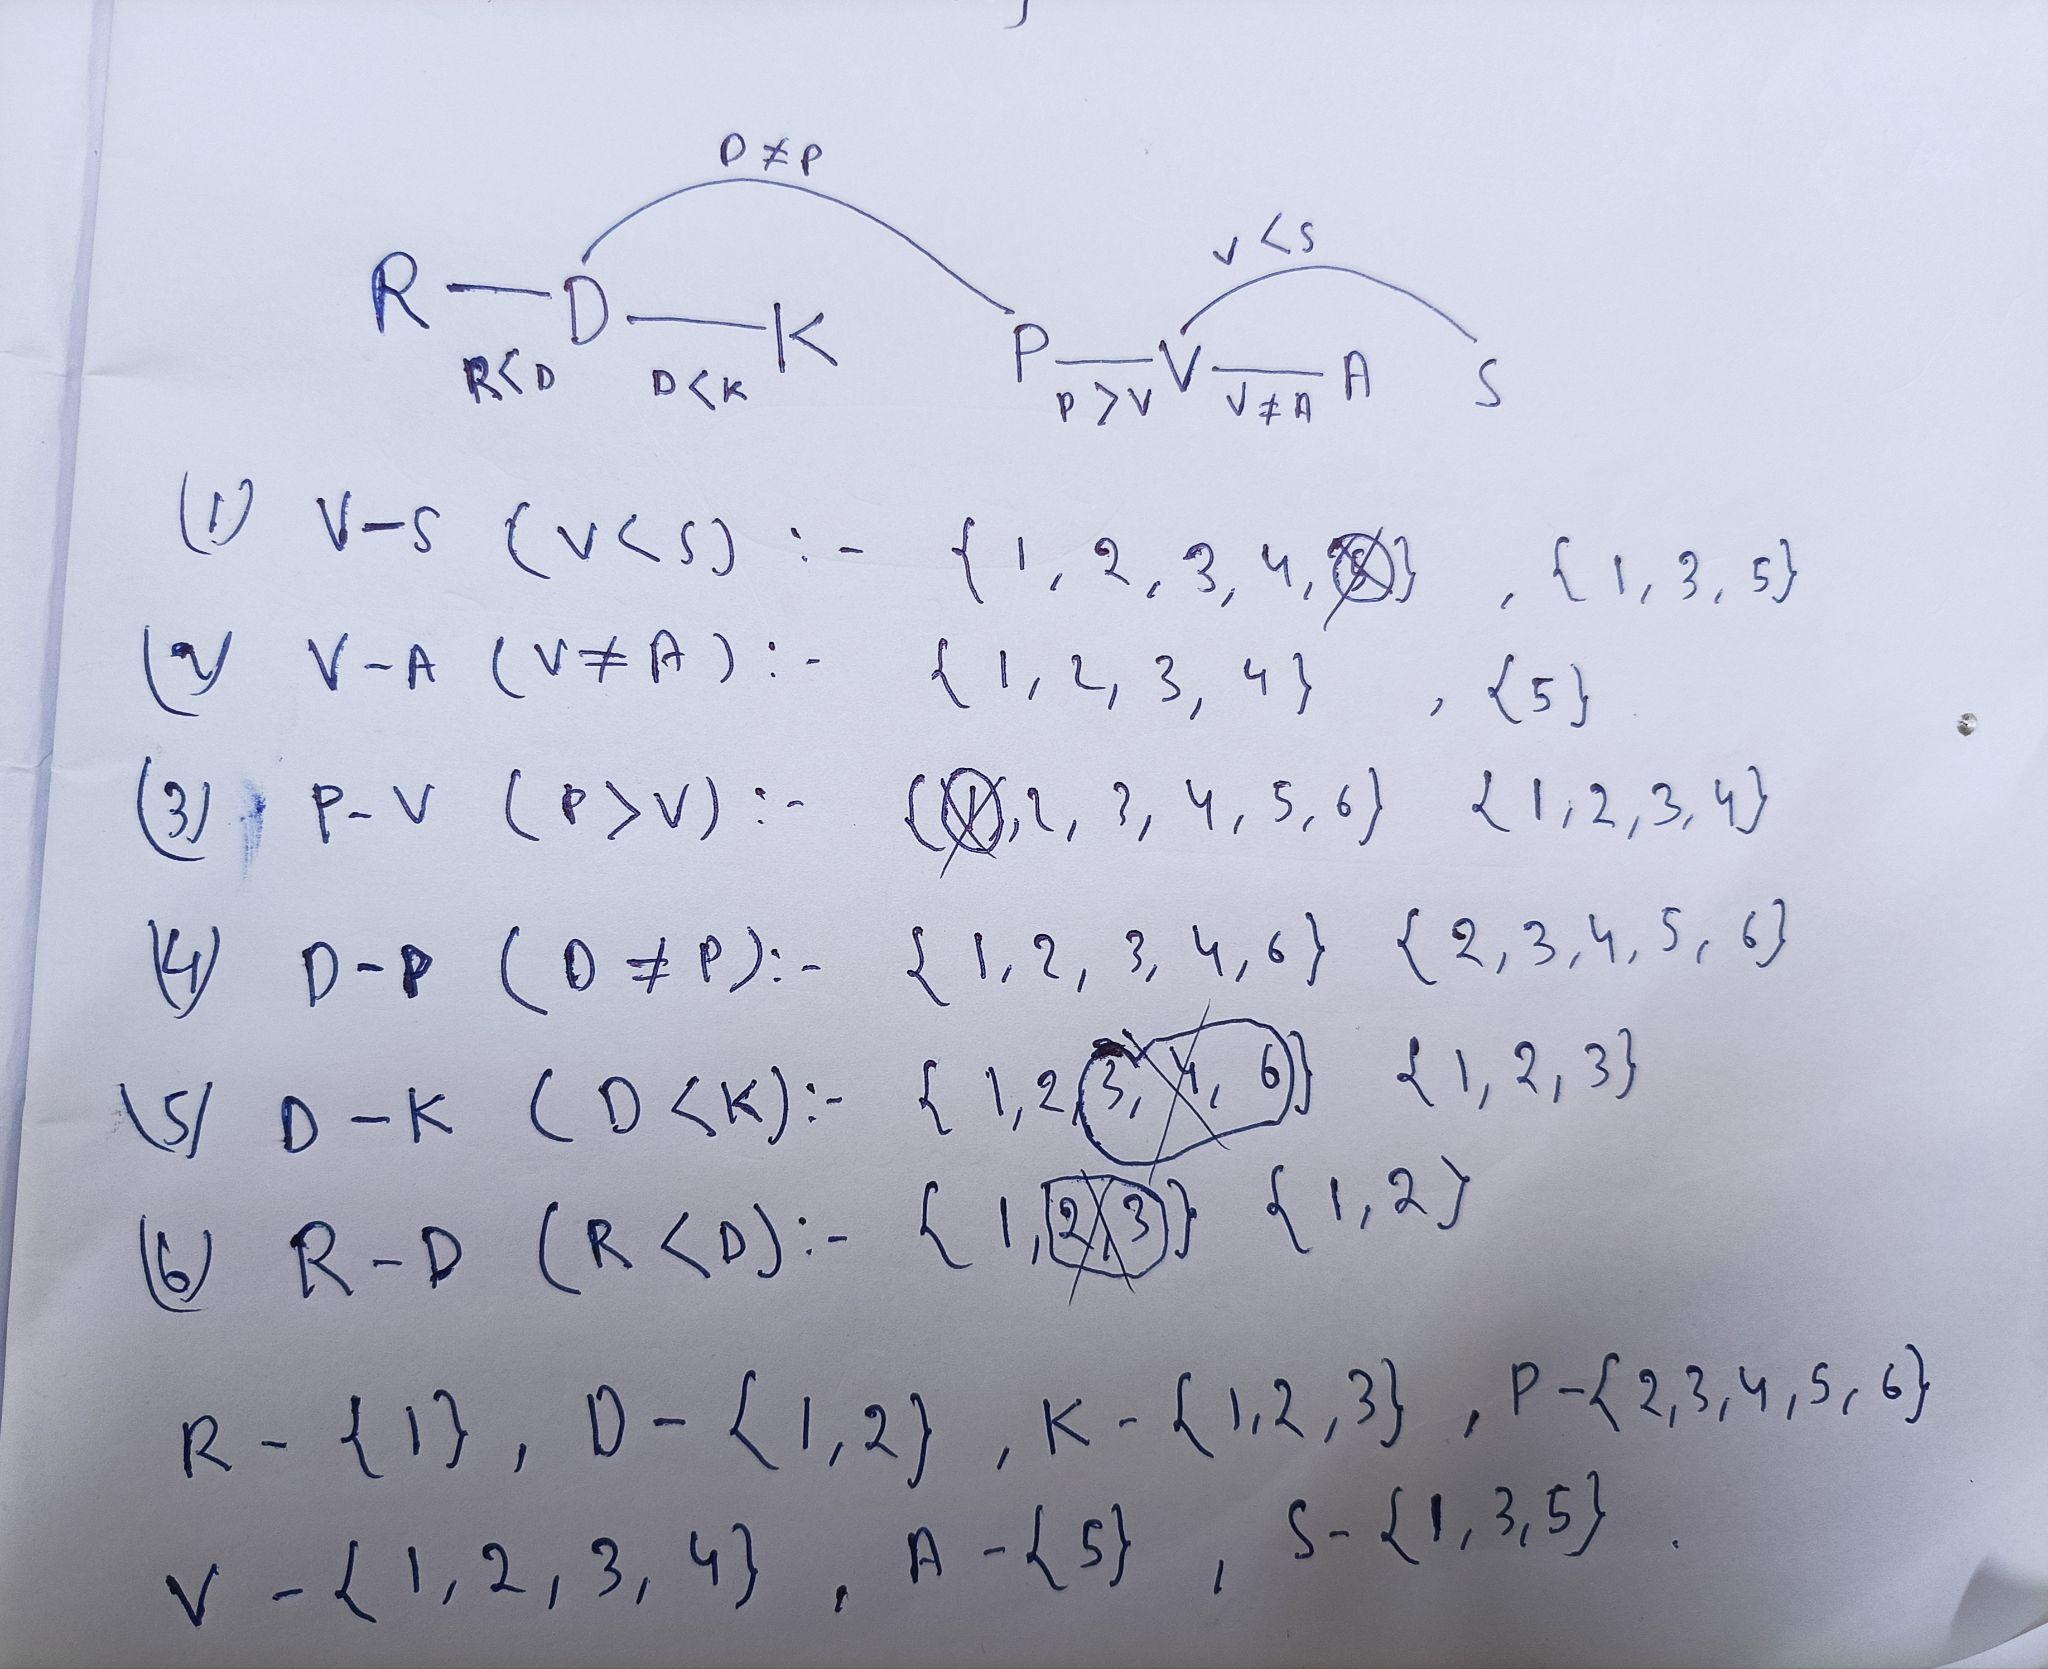 D ≠ P
V < S
R — D — K
P — V — A S
R<D D<K
P>V V≠A
(1) V-S (V<S) :- {1, 2, 3, 4, 5} , {1, 3, 5}
(2) V-A (V≠A) :- {1, 2, 3, 4} , {5}
(3) P-V (P>V) :- {1, 2, 3, 4, 5, 6} {1, 2, 3, 4}
(4) D-P (D≠P) :- {1, 2, 3, 4, 6} {2, 3, 4, 5, 6}
(5) D-K (D<K) :- {1, 2, 3, 4, 6} {1, 2, 3}
(6) R-D (R<D) :- {1, 2, 3} {1, 2}
R - {1} , D - {1, 2} , K - {1, 2, 3} , P - {2, 3, 4, 5, 6}
V - {1, 2, 3, 4} , A - {5} , S - {1, 3, 5} .